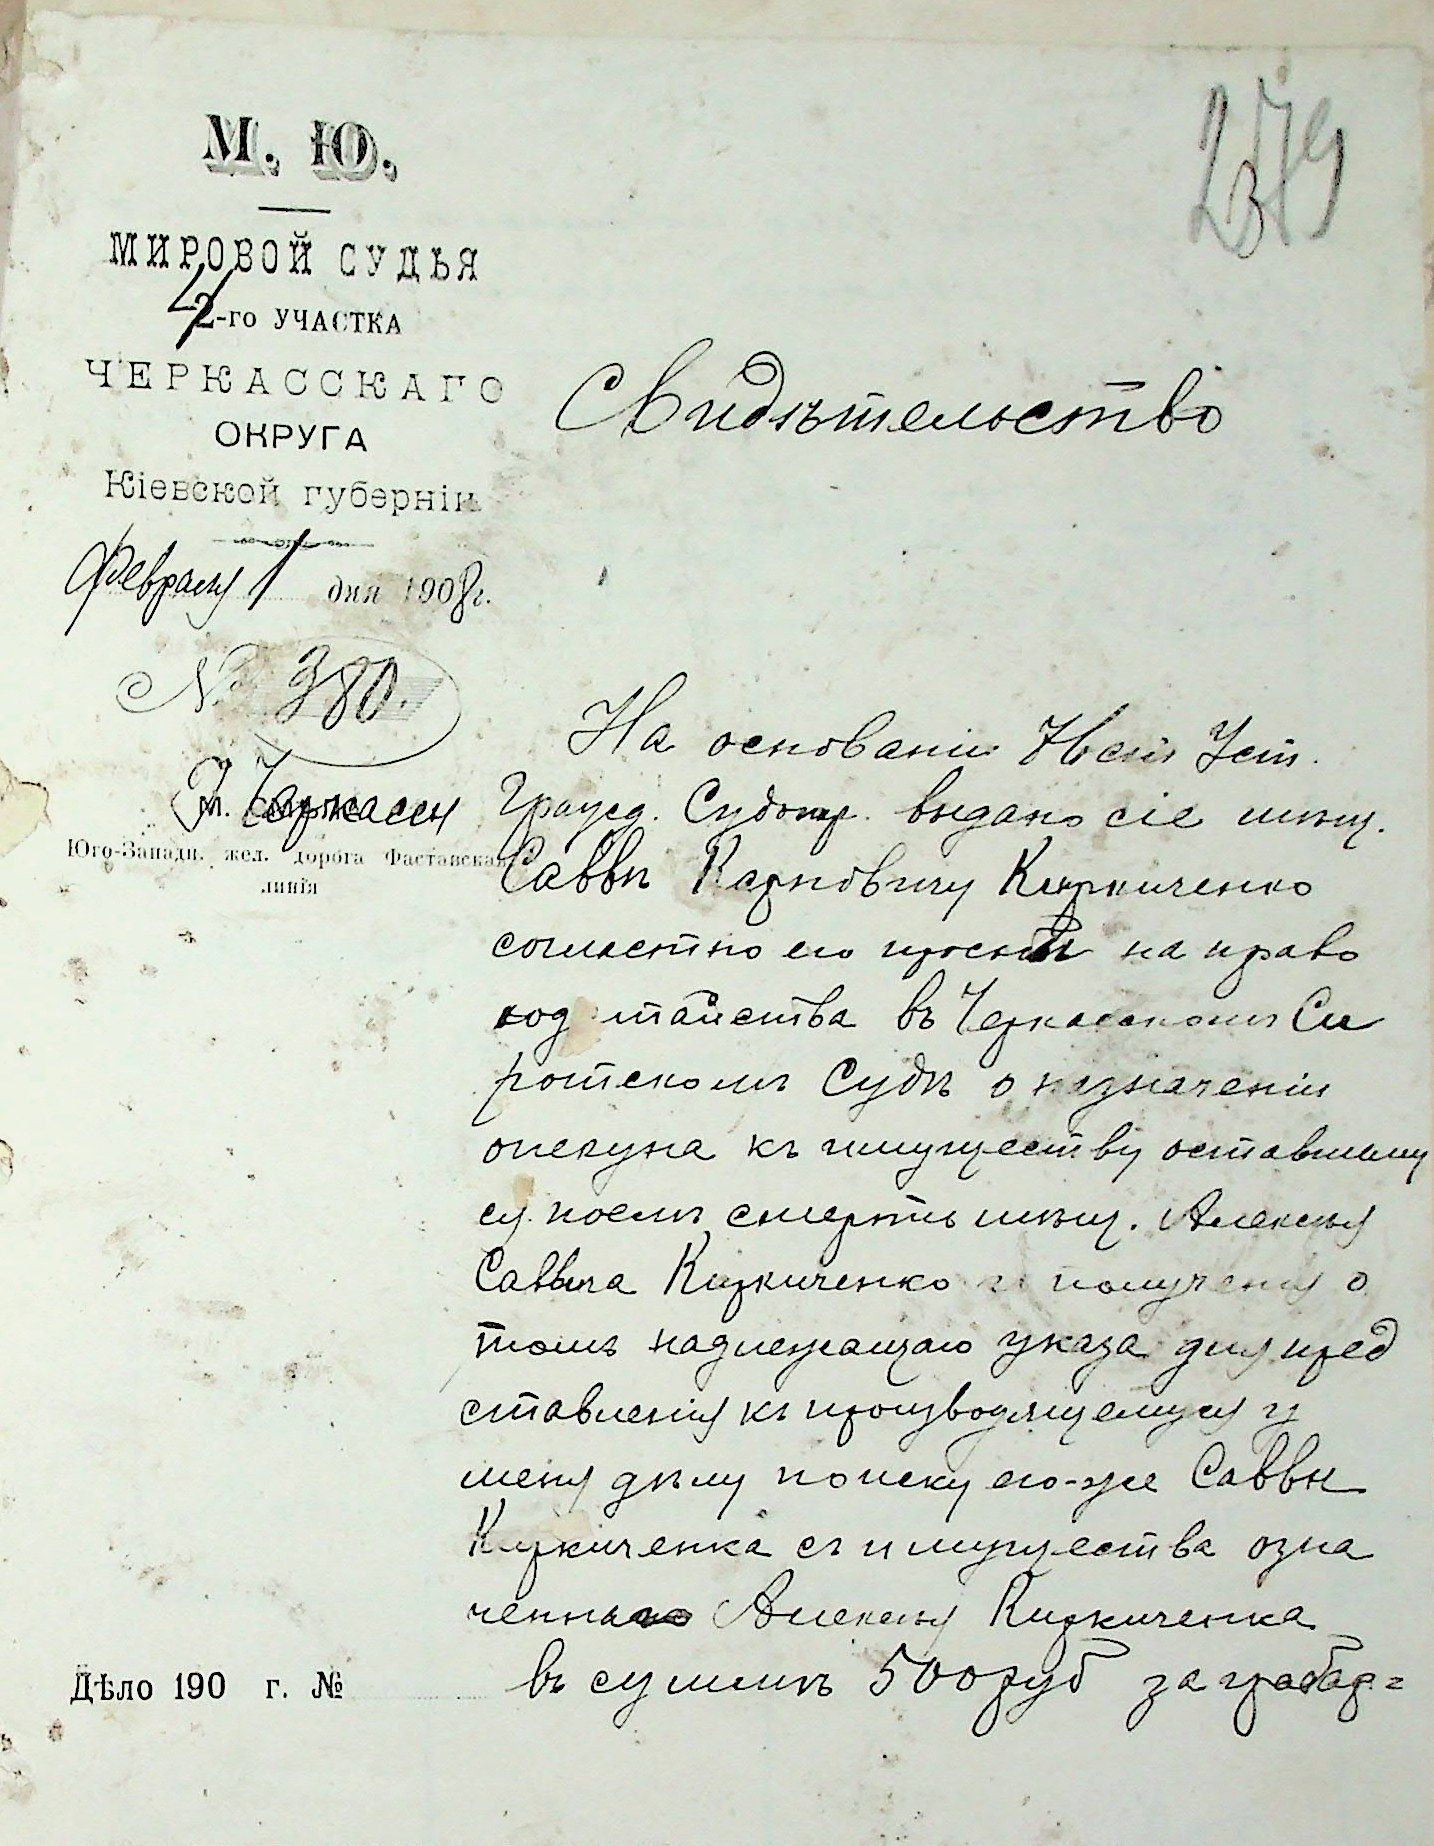 М. Ю.
МИРОВОЙ СУДЬЯ
4
2-го УЧАСТКА
ЧЕРКАССКАГО
ОКРУГА
Кіевской губерніи
Февраля 1 дня 1908 г.
№ 380.
Г. Черкассы
Юго-Западн. жел. дорога Фастовская
линія
Свидѣтельство
На основаніи Уст.
Гражд. Судопр. выдано сіе мѣщ.
Саввѣ Карповичу Киркиченко
согластно его просьбы на право
ходатайства въ Черкасскомъ Си
ротскомъ Судѣ о назначеніи
опекуна къ имуществу оставшему
ся послѣ смерть мѣщ. Алексѣя
Саввича Киркиченко и полученія о
томъ надлежащаго указа для пред
ставленія къ производящемуся у
меня дѣлу по иску его-же Саввы
Киркиченка съ имущества озна
ченнаго Алексѣя Киркиченка
въ суммѣ 500 руб за
Дѣло 190 г. №